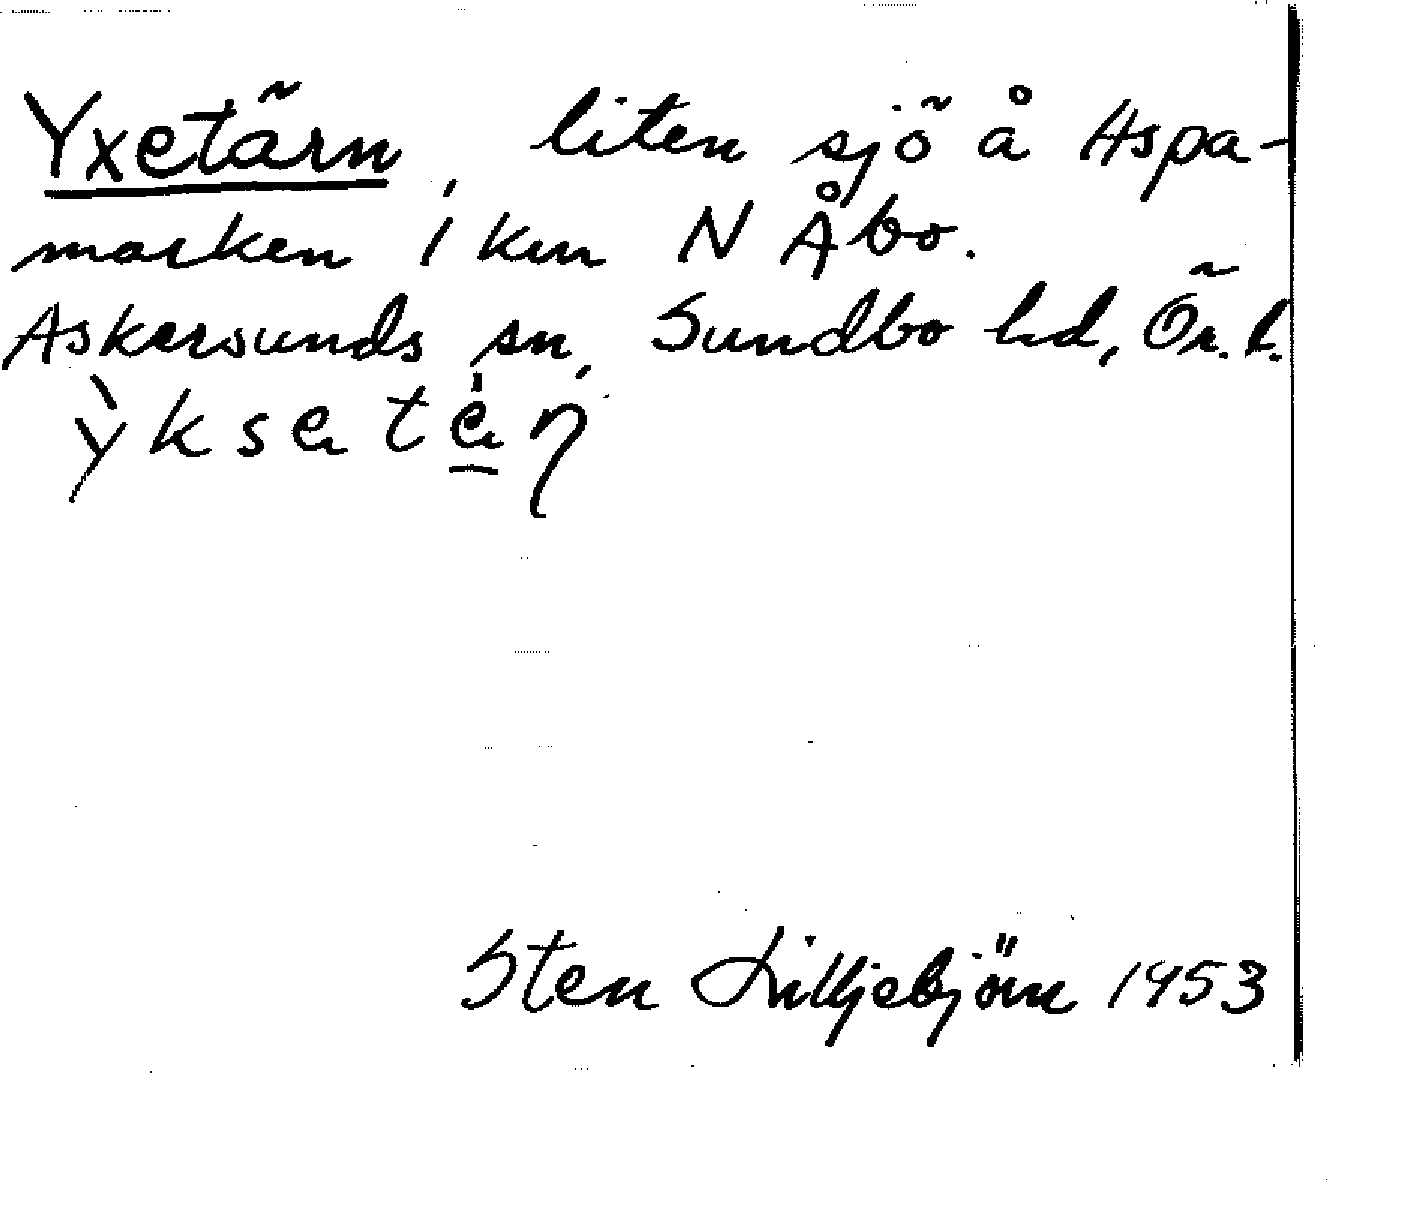 Yxetärn, liten sjö å Aspa-
marken 1 km N Åbo.
Askersunds sn, Sundbo hd, Ör. l.
Sten Lilljebjörn 1953